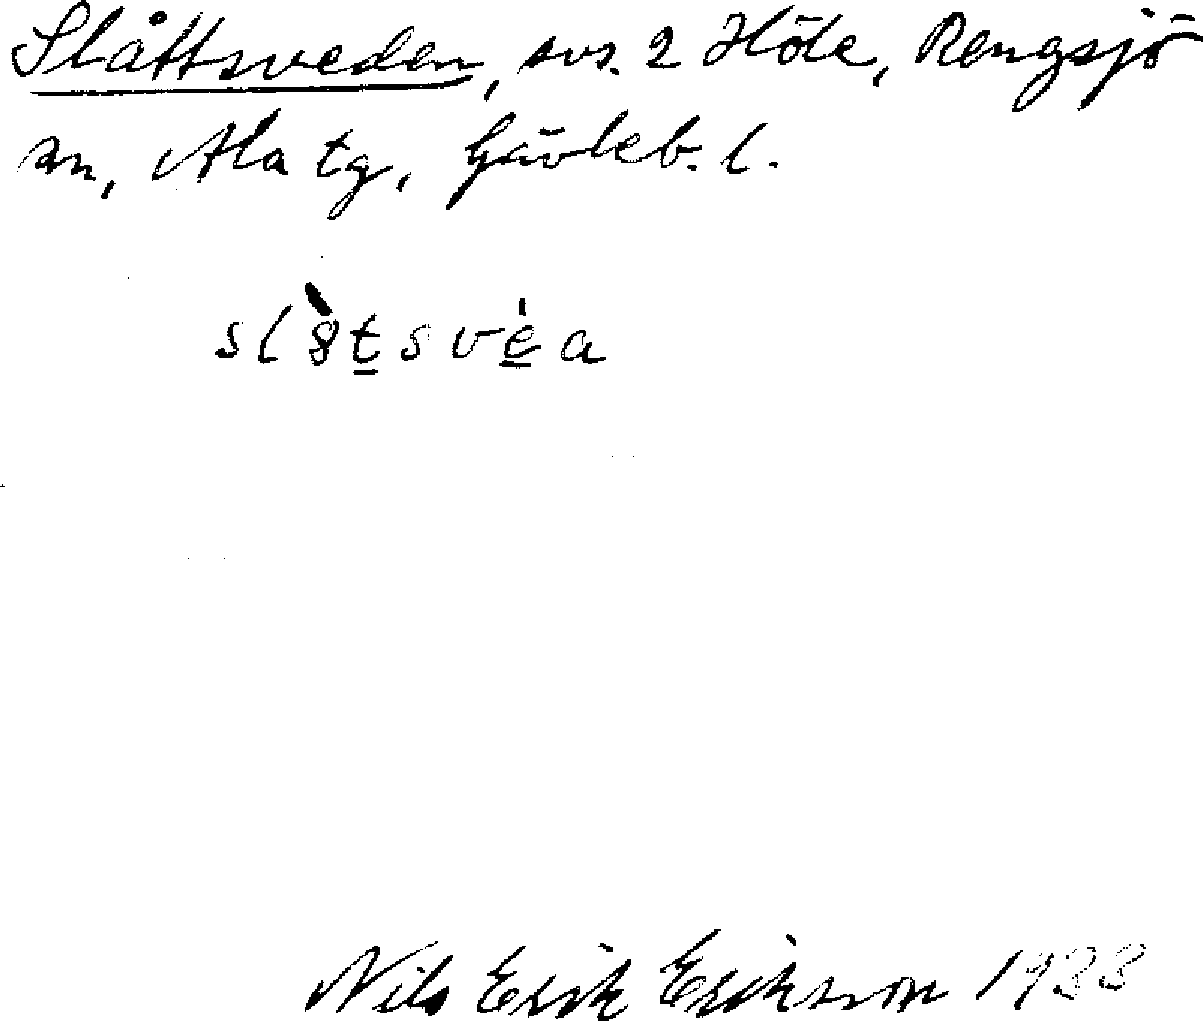 Slåttsveden, avs. 2 Höle, Rengsjö
sn, Ala tg, Gävleb. l.
sl8̀tsvéa
Nils Erik Eriksson 1933